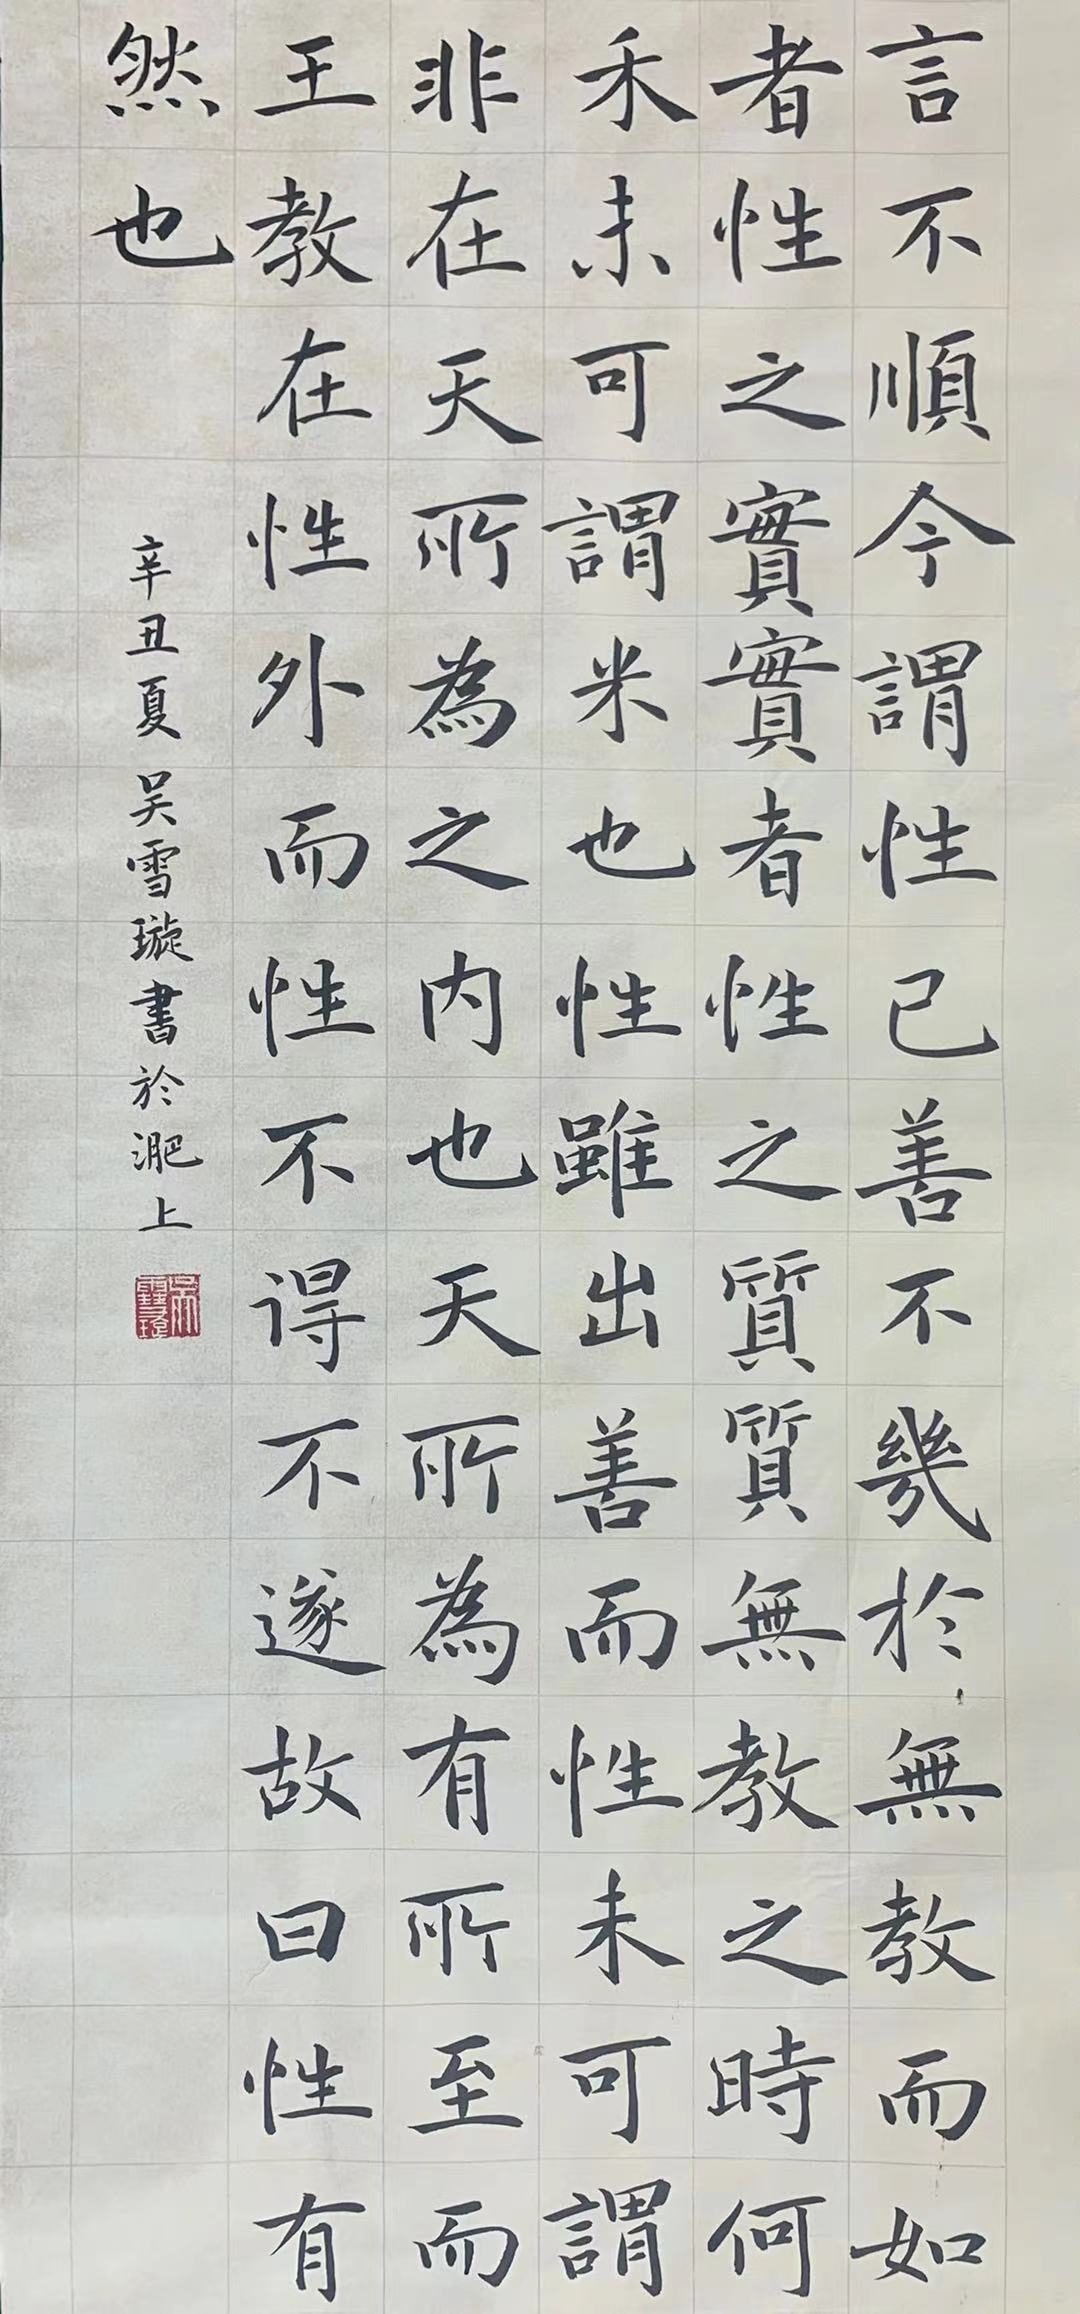 言不順今謂性已善不幾於無教而如
者性之實實者性之質質無教之時何
禾未可謂米也性雖出善而性未可謂
非在天所為之内也天所為有所至而
王教在性外而性不得不遂故曰性有
然也
辛丑夏吴雪璇書於淝上